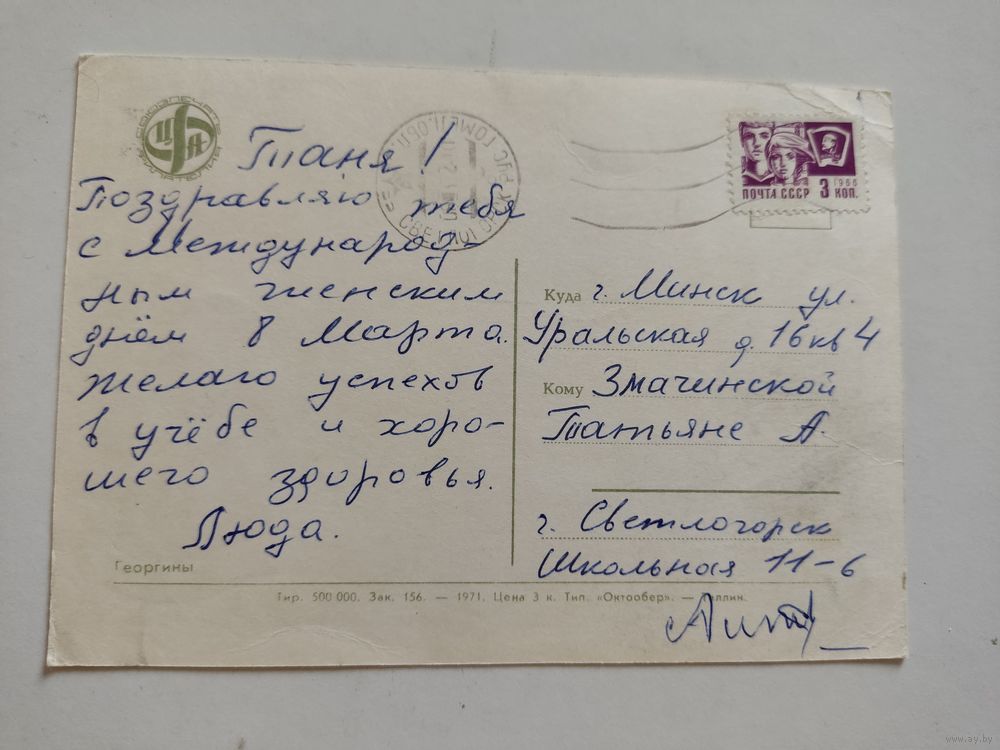 Таня!
Поздравляю тебя
с Международ-
ным женским
днём 8 Марта.
Желаю успехов
в учёбе и хоро-
шего здоровья.
Люда.
Георгины
ПОЧТА СССР 3 КОП.
1966
Куда г. Минск ул.
Уральская д. 16 кв 4
Кому Змачинской
Татьяне А.
г. Светлогорск
Школьная 11-6
Тир. 500 000. Зак. 156. — 1971. Цена 3 к. Тип. «Октообер». — Таллин.
www.ay.by